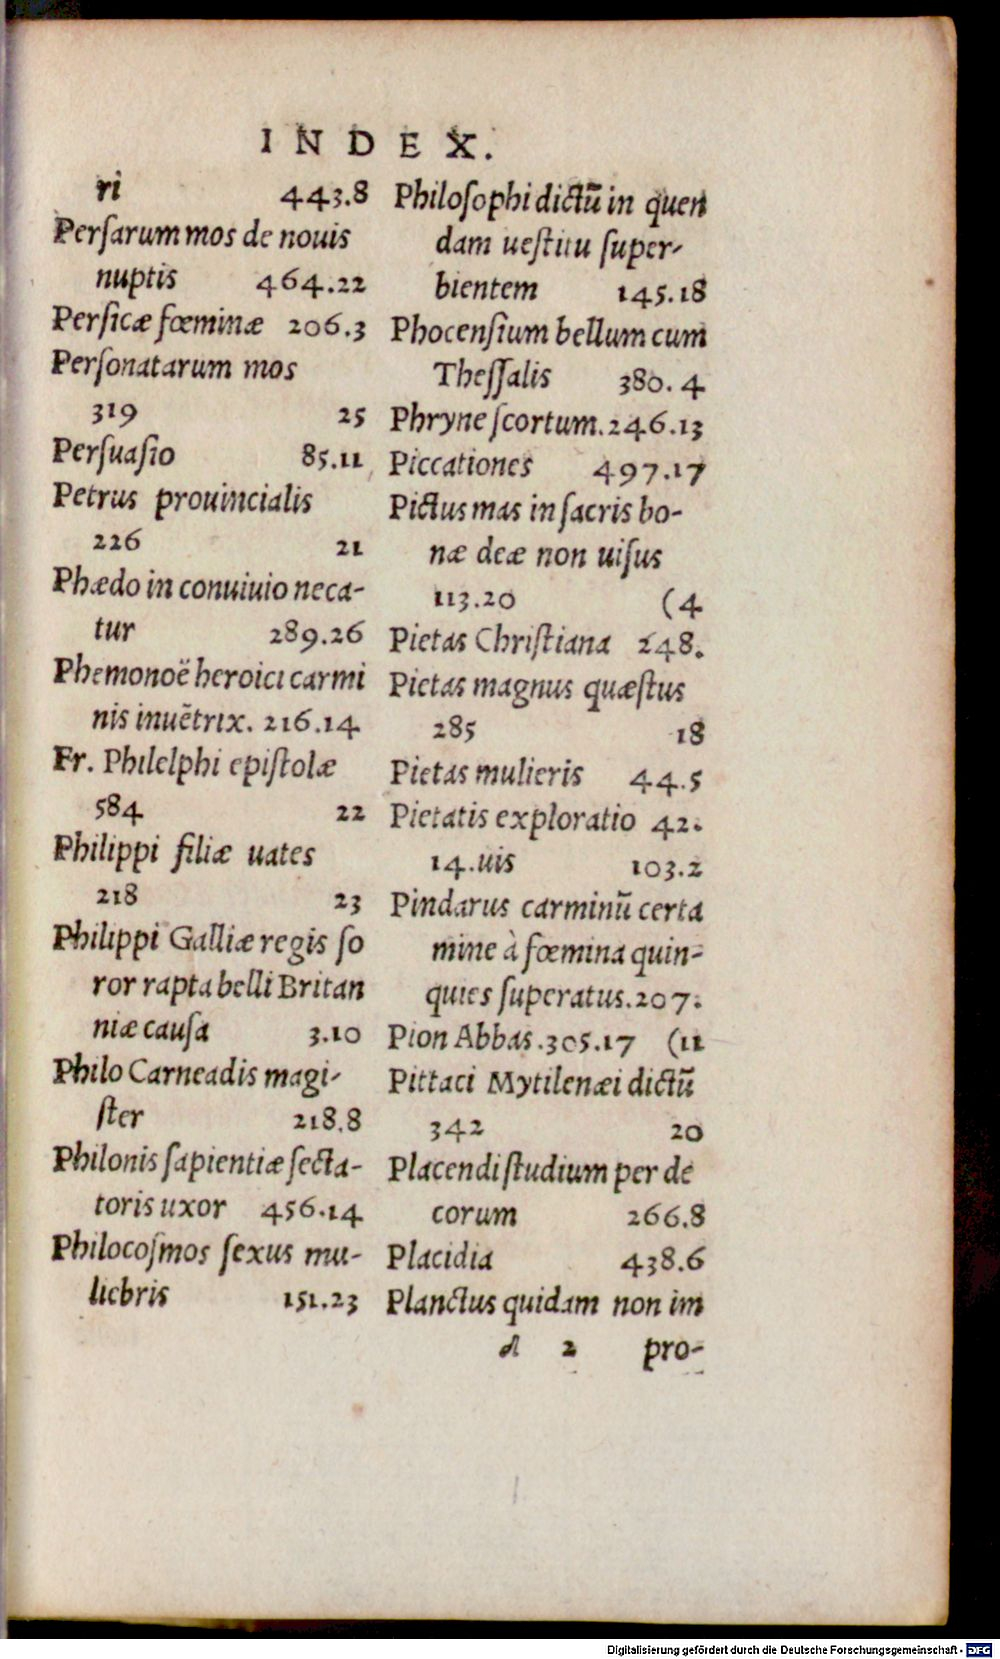 INDEX.
ri 443.8
Perſarum mos de nouis
nuptis 464.22
Perſicæ fœminæ 206.3
Perſonatarum mos
319 25
Perſuaſio 85.11
Petrus prouincialis
226 21
Phædo in conuiuio neca-
tur 289.26
Phemonoë heroici carmi
nis inuētrix. 216.14
Fr. Philelphi epiſtolæ
584 22
Philippi filiæ uates
218 23
Philippi Galliæ regis ſo
ror rapta belli Britan
niæ cauſa 3.10
Philo Carneadis magi-
ſter 218.8
Philonis ſapientiæ ſecta-
toris uxor 456.14
Philocoſmos ſexus mu-
liebris 151.23
Philoſophi dictū in quen
dam ueſtitu ſuper-
bientem 145.18
Phocenſium bellum cum
Theſſalis 380.4
Phryne ſcortum. 246.13
Piccationes 497.17
Pictus mas in ſacris bo-
næ deæ non uiſus
113.20 (4
Pietas Chriſtiana 248.
Pietas magnus quæſtus
285 18
Pietas mulieris 44.5
Pietatis exploratio 42.
14. uis 103.2
Pindarus carminū certa
mine à fœmina quin-
quies ſuperatus. 207.
Pion Abbas. 305.17 (11
Pittaci Mytilenæi dictū
342 20
Placendi ſtudium per de
corum 266.8
Placidia 438.6
Planctus quidam non im
d 2 pro-
Digitalisierung gefördert durch die Deutsche Forschungsgemeinschaft - DFG